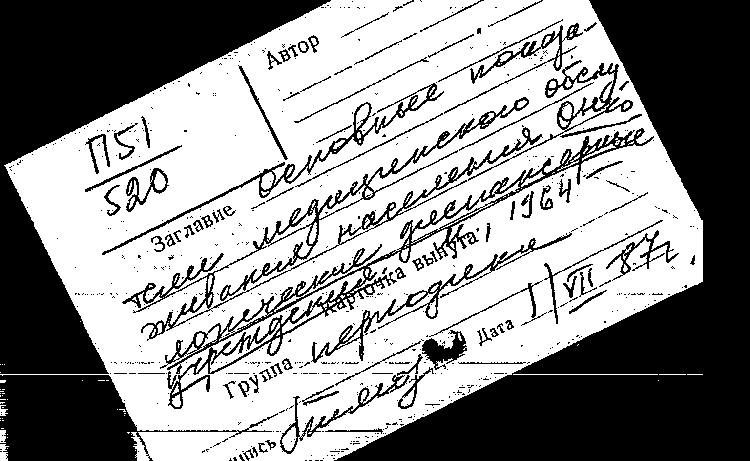 П51
520
Автор
Заглавие Основные показа-
тели медицинского обслу
живания населения. Онко
логические диспансерные
учреждения. М., 1964
Карточка вынута
Группа периодики
Дата 1/VII-87г.